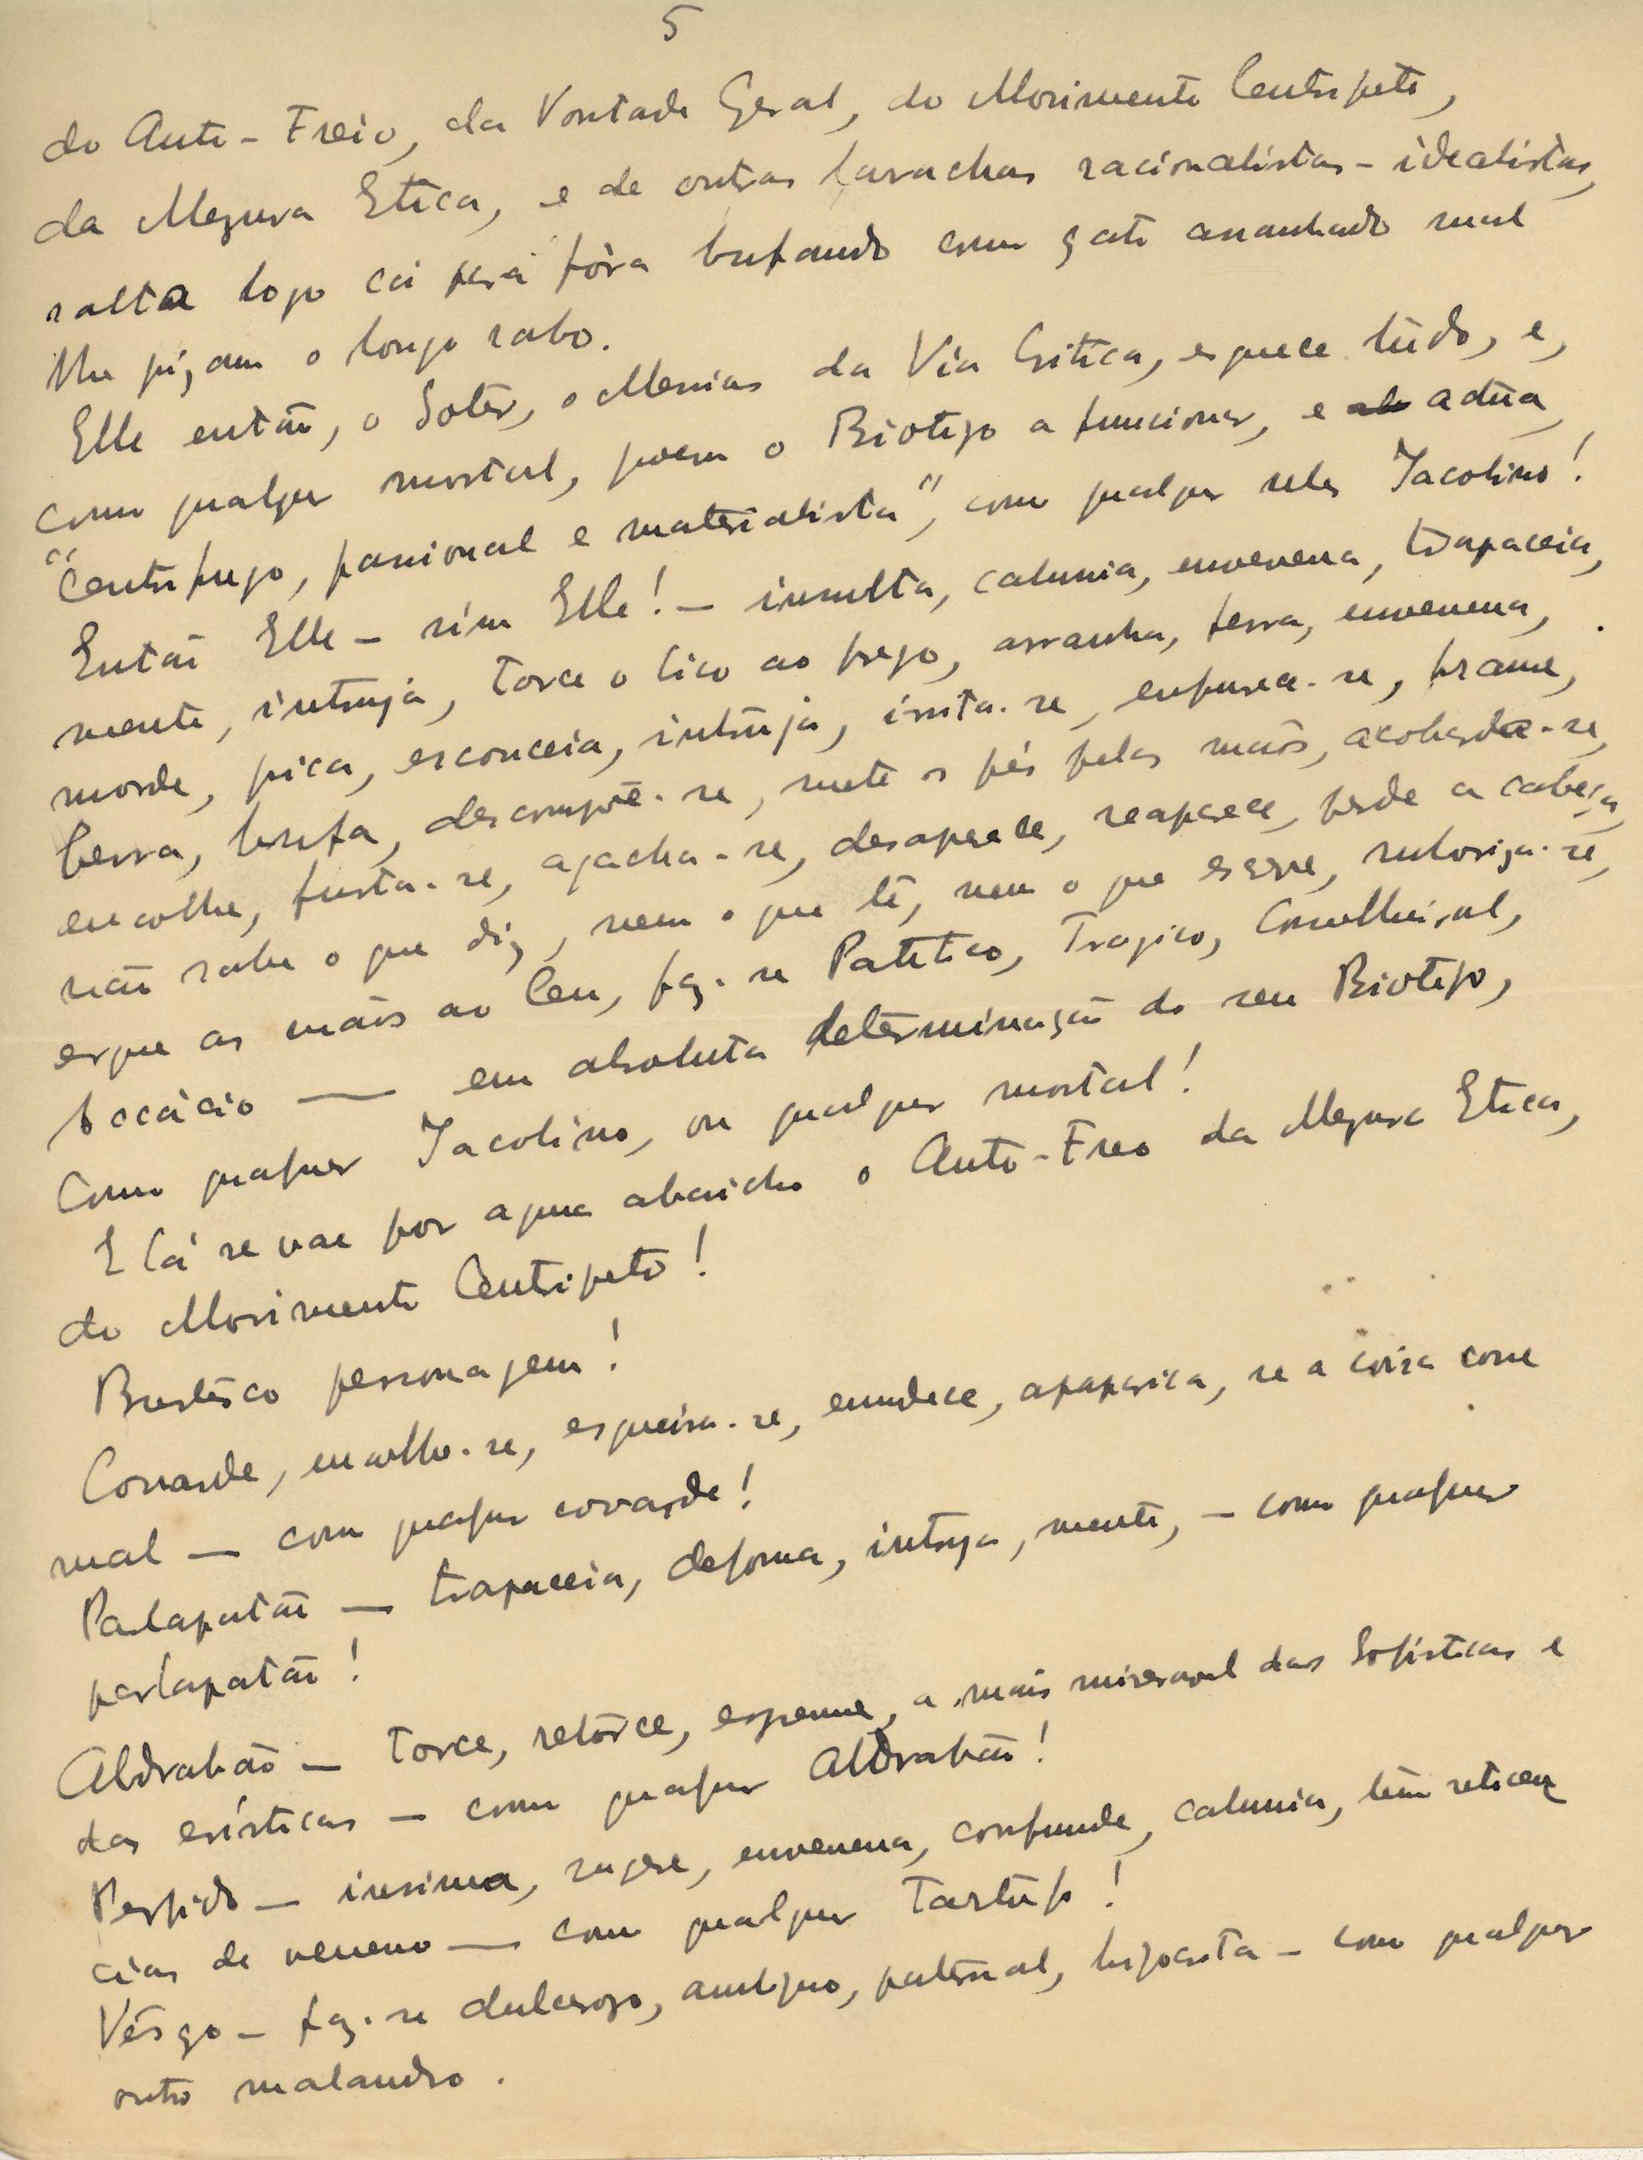 5
do Auto-Freio, da Vontade Geral, do Movimento Centripeto,
da Megera Etica, e de outras larachas racionalistas-idealistas,
salta logo cá pera fóra bufando como gato assanhado mal
lhe pizam o longo rabo.
Elle então, o Soter, o Messias da Via Critica, esquece túdo, e,
como qualquer mortal, poem o Biotipo a funcionar, e actúa,
"Centrifugo, passional e materialista", como qualquer reles Jacobino!
Então Elle - sim Elle! - insulta, calunia, envenena, trapaceia,
mente, intruja, torce o bico ao prego, arranha, ferra, envenena,
morde, pica, escouceia, intrúja, irrita-se, enfurea-se, brame,
berra, bufa, descompõe-se, mete os pés pelas mãos, acobarda-se,
encolhe, furta-se, agacha-se, desaparece, reaparece, perde a cabeça,
não sabe o que diz, nem o que lê, nem o que escreve, ruboriza-se,
ergue as mãos ao Ceu, faz-se Patetico, Tragico, Conselheiral,
bocácio — em absoluta determinação do seu Biotipo,
Como qualquer Jacobino, ou qualquer mortal!
E lá se vae por agua abaicho o Auto-Freo da Megera Etica,
do Movimento Centripeto!
Burlesco personagem!
Covarde, encolhe-se, esgueira-se, emudece, apaparica, se a coisa corre
mal — como qualquer covarde!
Parlapatão — trapaceia, deforma, intruja, mente, - como qualquer
parlapatão!
Aldrabão — torce, retorce, espreme, a mais miseravel das Sofisticas e
das erísticas - como qualquer Aldrabão!
Perfido - insinua, sugere, envenena, confunde, calunia, têm reticen
cias de veneno — como qualquer Tartufo!
Vésgo - faz-se dulceroso, ambiguo, paternal, hipocrita - como qualquer
outro malandro.